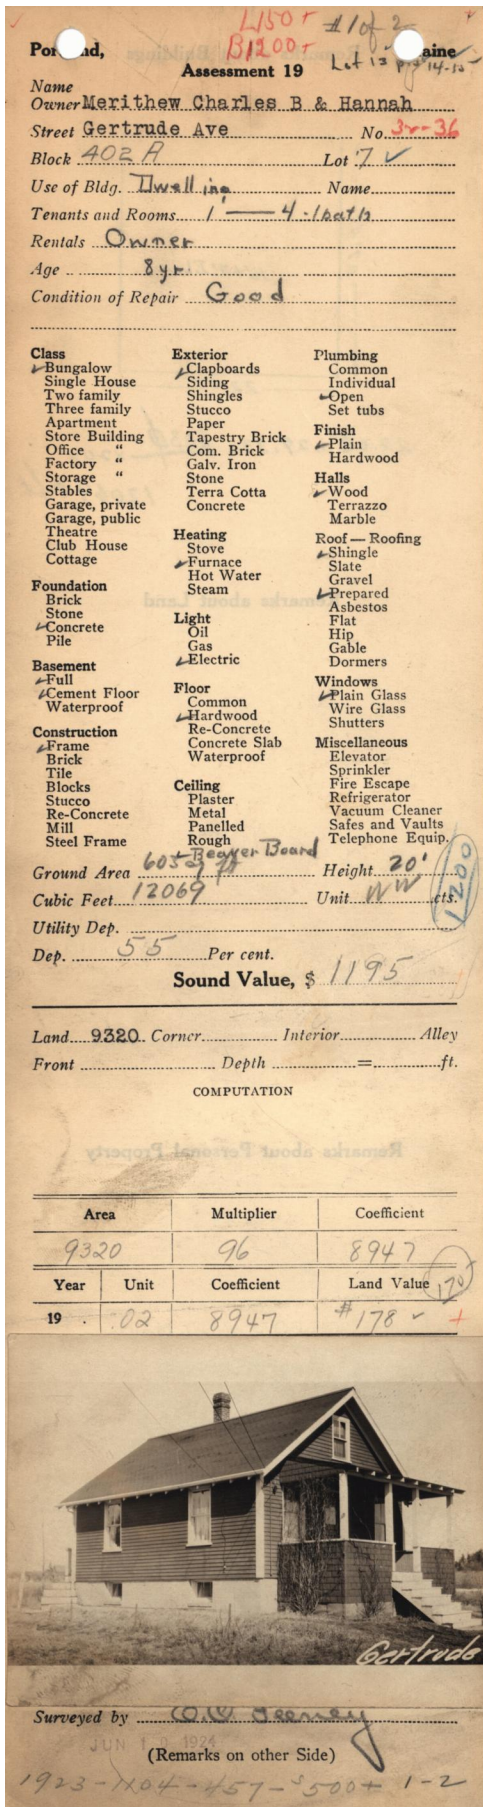 L150+ #1 of 2
B1200+ Lot 13
Portland, Maine
Assessment 19
Name
Owner Merithew Charles B & Hannah
Street Gertrude Ave No. 32-36
Block 402 A Lot 7 ✓
Use of Bldg. Dwelling Name
Tenants and Rooms 1 — 4 - 1 bath
Rentals Owner
Age 8 yr
Condition of Repair Good
Class
✓ Bungalow
Single House
Two family
Three family
Apartment
Store Building
Office "
Factory "
Storage "
Stables
Garage, private
Garage, public
Theatre
Club House
Cottage
Foundation
Brick
Stone
✓ Concrete
Pile
Basement
✓ Full
✓ Cement Floor
Waterproof
Construction
✓ Frame
Brick
Tile
Blocks
Stucco
Re-Concrete
Mill
Steel Frame
Exterior
✓ Clapboards
Siding
Shingles
Stucco
Paper
Tapestry Brick
Com. Brick
Galv. Iron
Stone
Terra Cotta
Concrete
Heating
Stove
✓ Furnace
Hot Water
Steam
Light
Oil
Gas
✓ Electric
Floor
Common
✓ Hardwood
Re-Concrete
Concrete Slab
Waterproof
Ceiling
Plaster
Metal
Panelled
Rough
Beaver Board
Plumbing
Common
Individual
✓ Open
Set tubs
Finish
✓ Plain
Hardwood
Halls
✓ Wood
Terrazzo
Marble
Roof — Roofing
✓ Shingle
Slate
Gravel
✓ Prepared
Asbestos
Flat
Hip
Gable
Dormers
Windows
✓ Plain Glass
Wire Glass
Shutters
Miscellaneous
Elevator
Sprinkler
Fire Escape
Refrigerator
Vacuum Cleaner
Safes and Vaults
Telephone Equip.
Ground Area 605 sq ft Height 20'
Cubic Feet 12069 Unit cts.
1200
Utility Dep.
Dep. 55 Per cent.
Sound Value, $ 1195
Land 9320 Corner Interior Alley
Front Depth = ft.
COMPUTATION
Area Multiplier Coefficient
9320 96 8947
Year Unit Coefficient Land Value
19 . .02 8947 # 178 ✓ +
Gertrude
Surveyed by
JUN 1924
(Remarks on other Side)
1923 - - 457 - $500+ 1-2